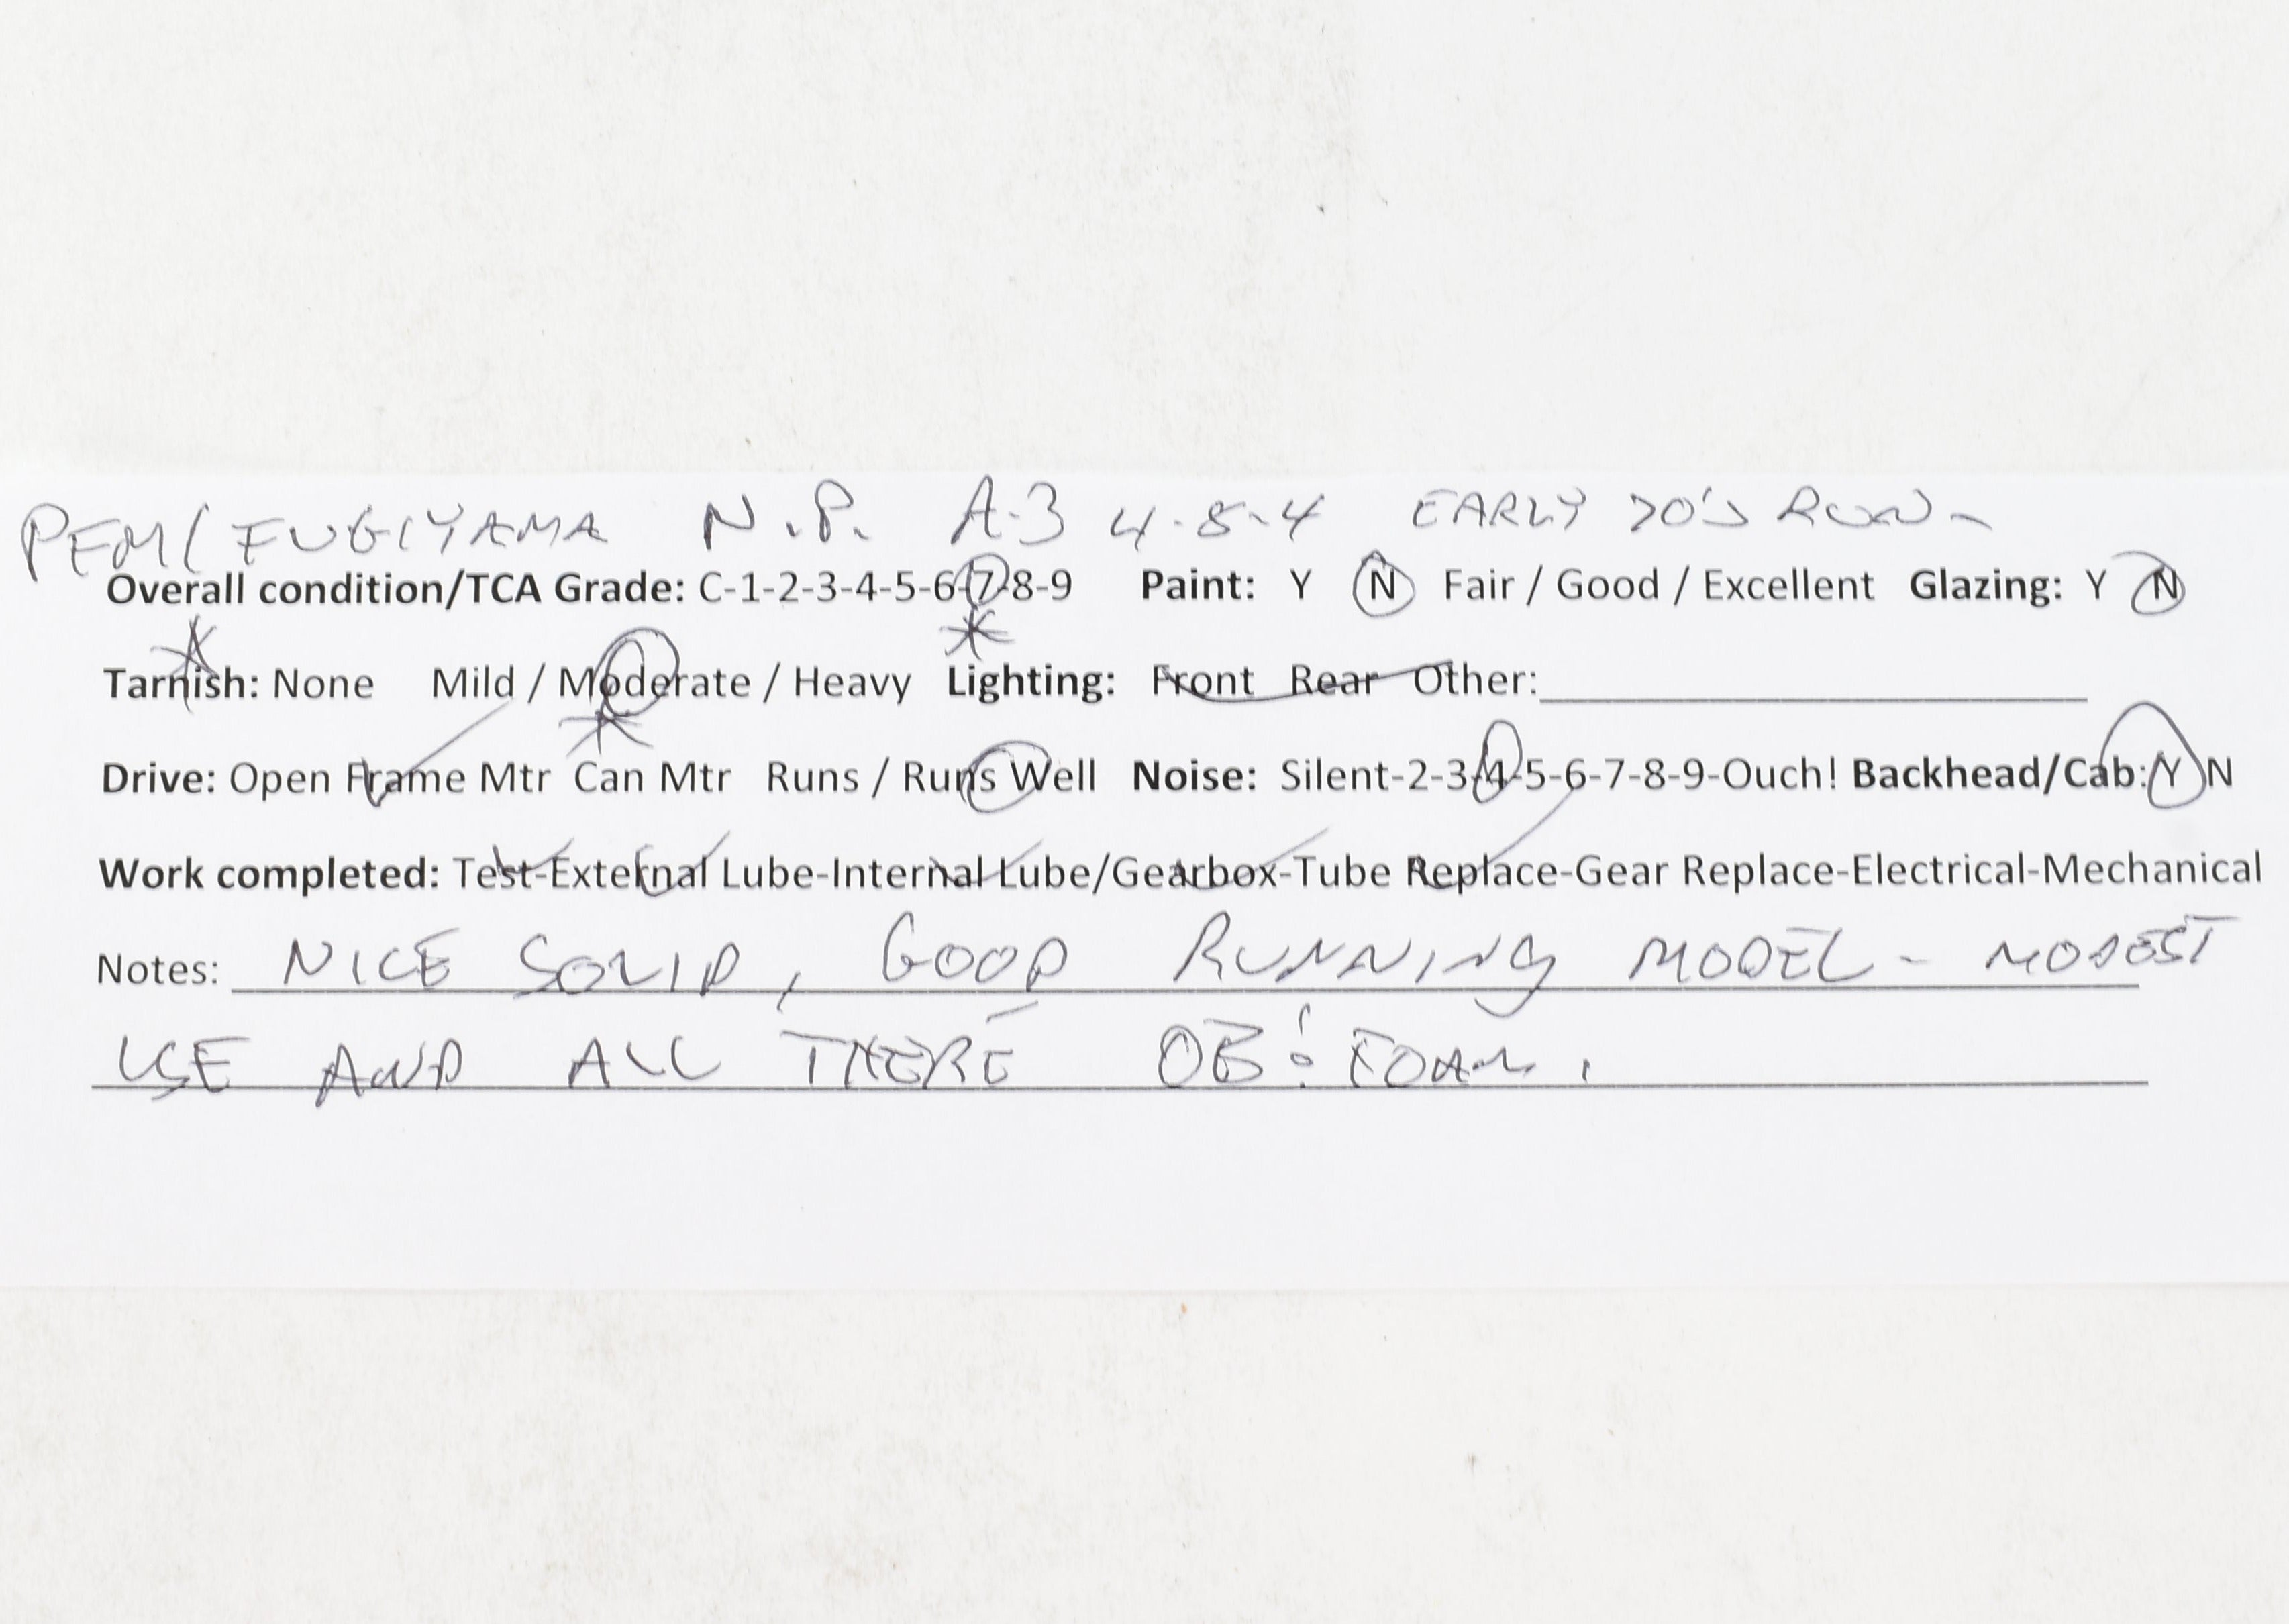 PFM/FUGIYAMA N.P. A-3 4-8-4 EARLY 70'S RUN-
Overall condition/TCA Grade: C-1-2-3-4-5-6-7-8-9 Paint: Y N Fair / Good / Excellent Glazing: Y N
Tarnish: None Mild / Moderate / Heavy Lighting: Front Rear Other:
Drive: Open Frame Mtr Can Mtr Runs / Runs Well Noise: Silent-2-3-4-5-6-7-8-9-Ouch! Backhead/Cab: Y N
Work completed: Test-External Lube-Internal Lube/Gearbox-Tube Replace-Gear Replace-Electrical-Mechanical
Notes: NICE SOLID, GOOD RUNNING MODEL - MODEST
USE AND ALL THERE OB & FOAM.